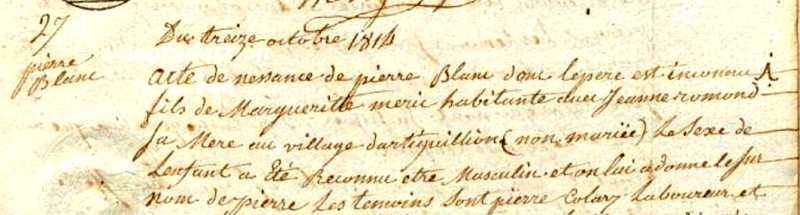 27
pierre
Blanc
Du treize octobre 1814
acte de nessance de pierre Blanc dont lepere est inconnu
fils de Margueritte meric habitante avec Jeanne romond
sa Mere au village dartiguillion (non mariée) Le Sexe de
Lenfant a Eté Reconnu etre Masculin et on lui a donne le sur
nom de pierre Les temoins Sont pierre Colary Laboureur et